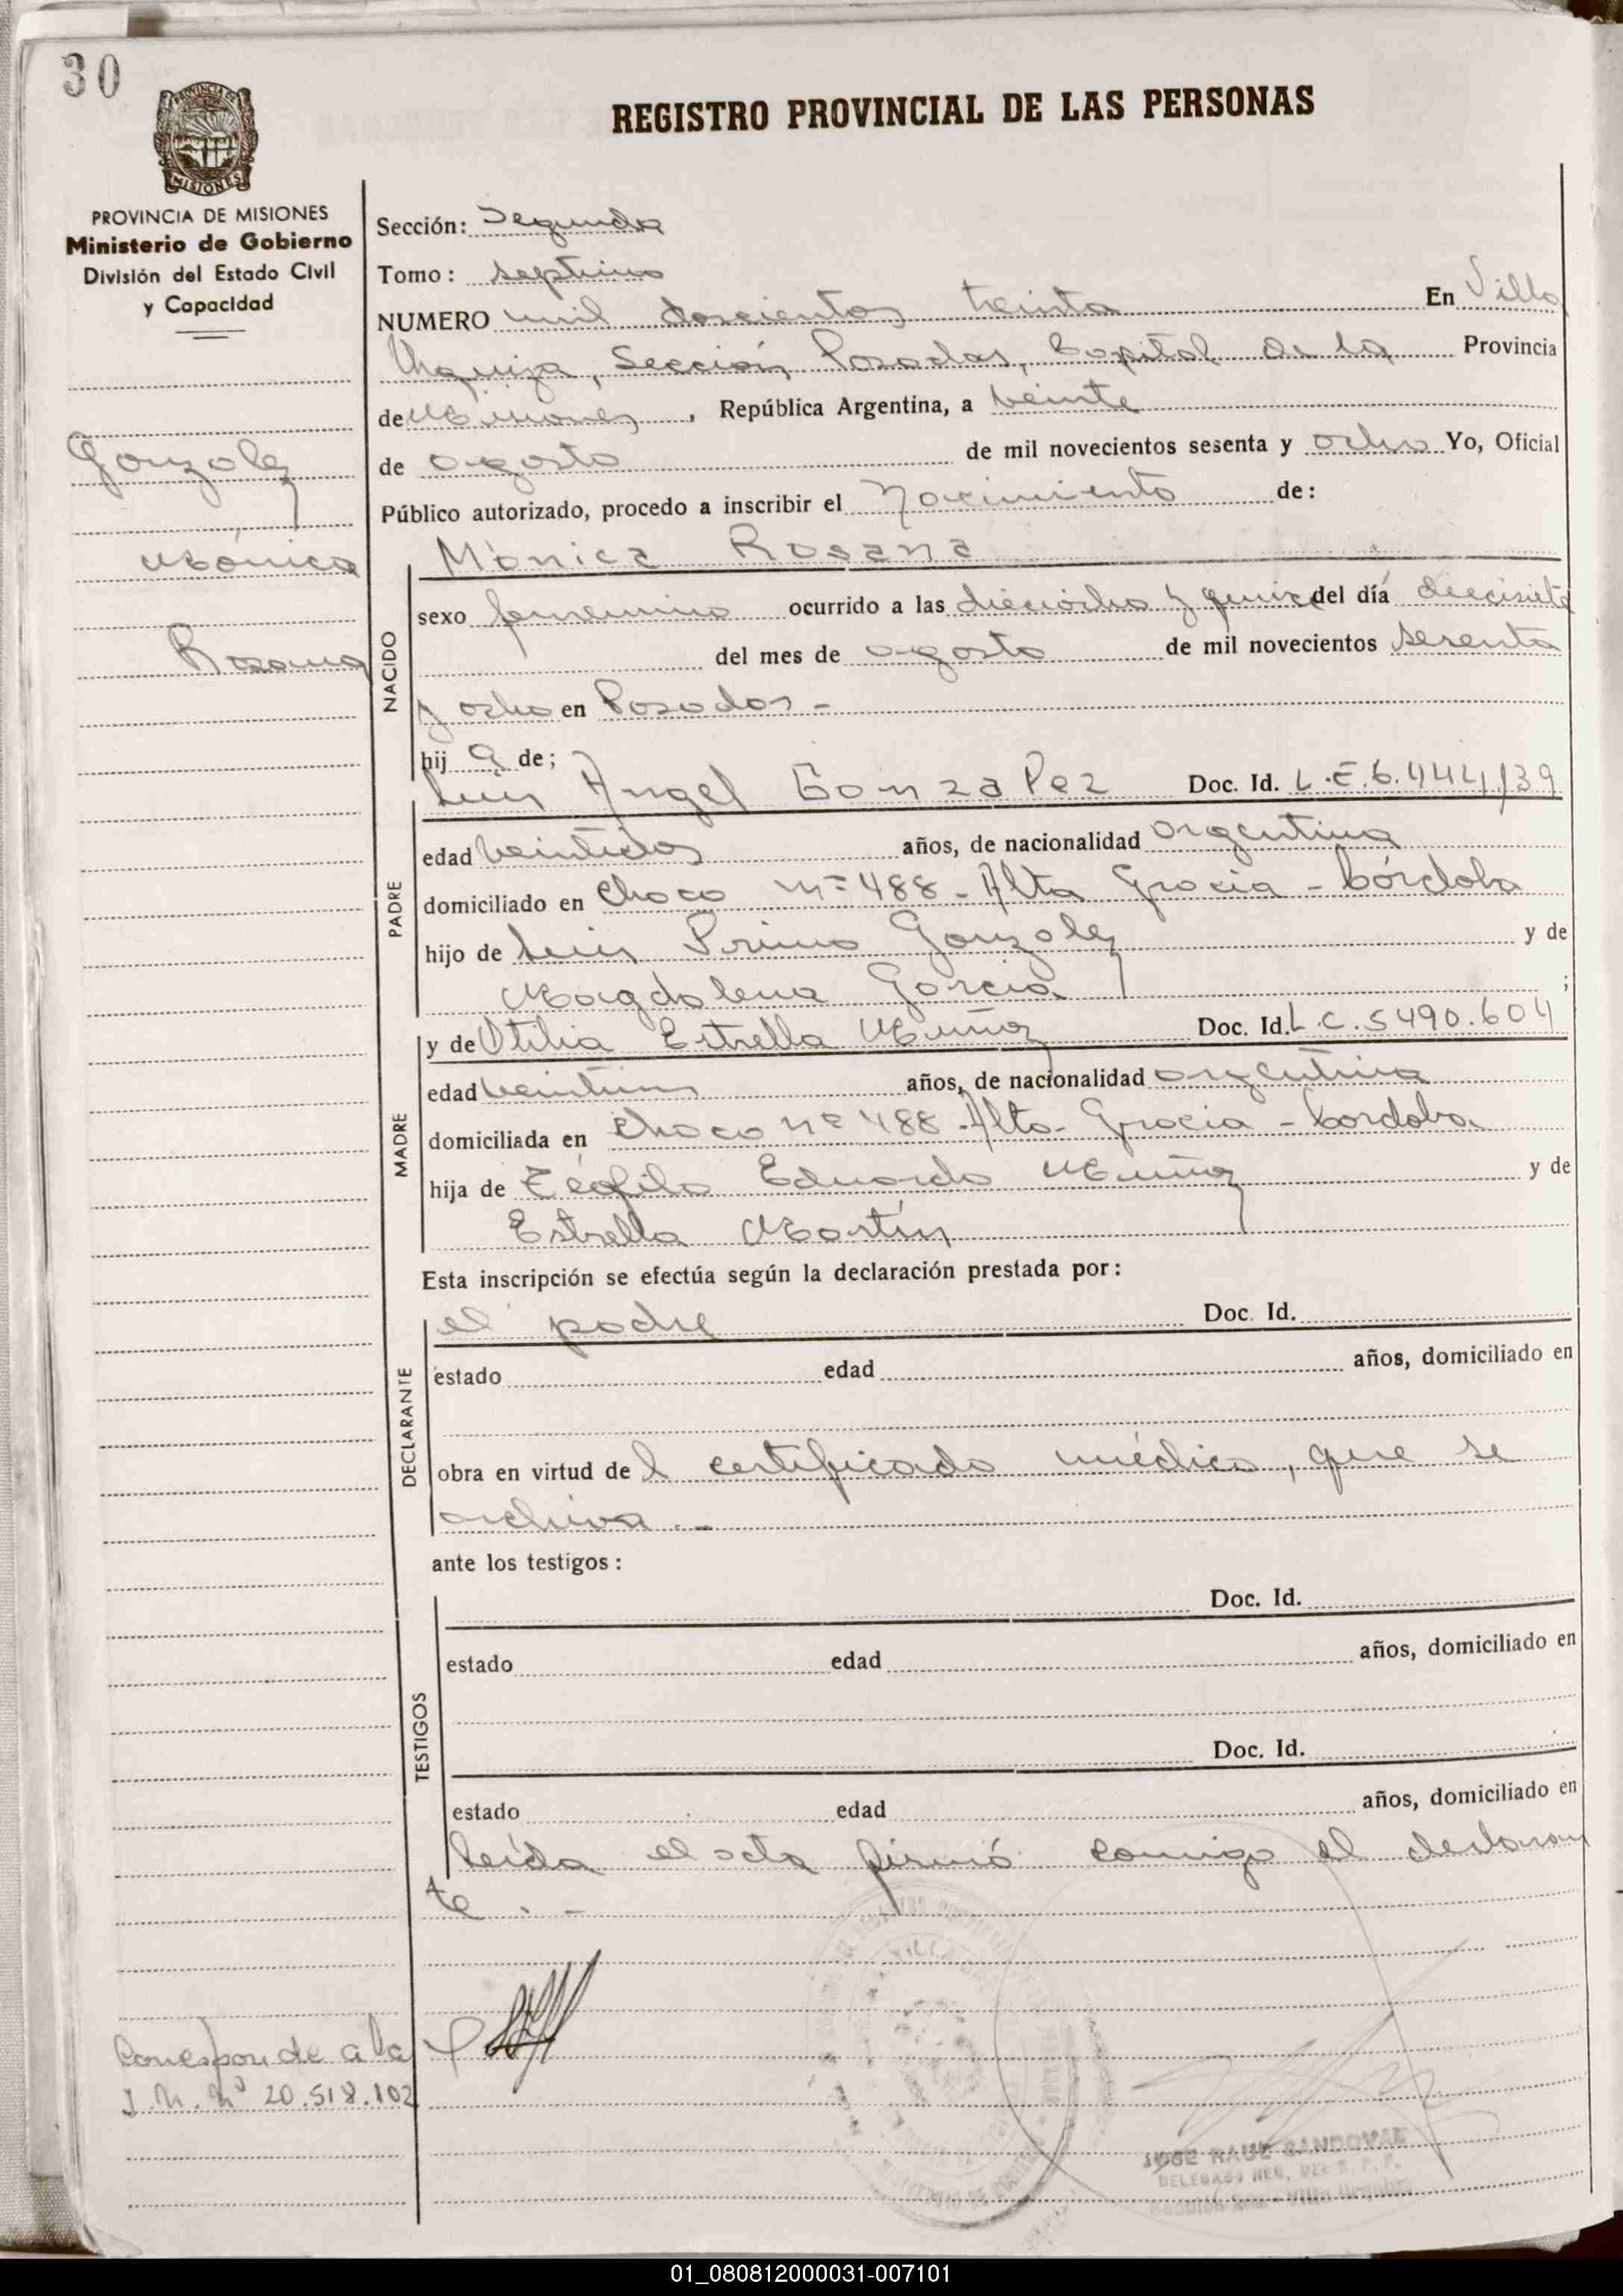 30
REGISTRO PROVINCIAL DE LAS PERSONAS
PROVINCIA DE MISIONES
Ministerio de Gobierno
División del Estado Civil
y Capacidad
Gonzalez
Mónica
Rosana
Sección: Segunda
Tomo: septimo
NUMERO mil doscientos treinta En Villa
Urquiza, Sección Posadas, Capital de la Provincia
de Misiones, República Argentina, a veinte
de agosto de mil novecientos sesenta y ocho Yo, Oficial
Público autorizado, procedo a inscribir el Nacimiento de:
Mónica Rosana
NACIDO
sexo femenino ocurrido a las dieciocho y quince del día diecisiete
del mes de agosto de mil novecientos sesenta
y ocho en Posadas -
hij a de;
Luis Angel Gonzalez Doc. Id. L.E.6.444.139
PADRE
edad veintidos años, de nacionalidad argentina
domiciliado en Chaco nº 488 - Alta Gracia - Córdoba
hijo de Luis Primo Gonzalez y de
Magdalena Garcia ;
y de Otilia Estrella Muñoz Doc. Id. L.C.5490.604
MADRE
edad veintiun años, de nacionalidad argentina
domiciliada en Chaco nº 488 - Alta - Gracia - Cordoba
hija de Teófilo Eduardo Muñoz y de
Estrella Martín
Esta inscripción se efectúa según la declaración prestada por:
el padre Doc. Id.
DECLARANTE
estado edad años, domiciliado en
obra en virtud de l certificado médico, que se
archiva.-
ante los testigos:
Doc. Id.
TESTIGOS
estado edad años, domiciliado en
Doc. Id.
estado edad años, domiciliado en
leída el acta firmó conmigo el declaran
te.-
Corresponde a la
I.N. nº 20.518.102
JOSE RAUL SANDOVAL
01_080812000031-007101